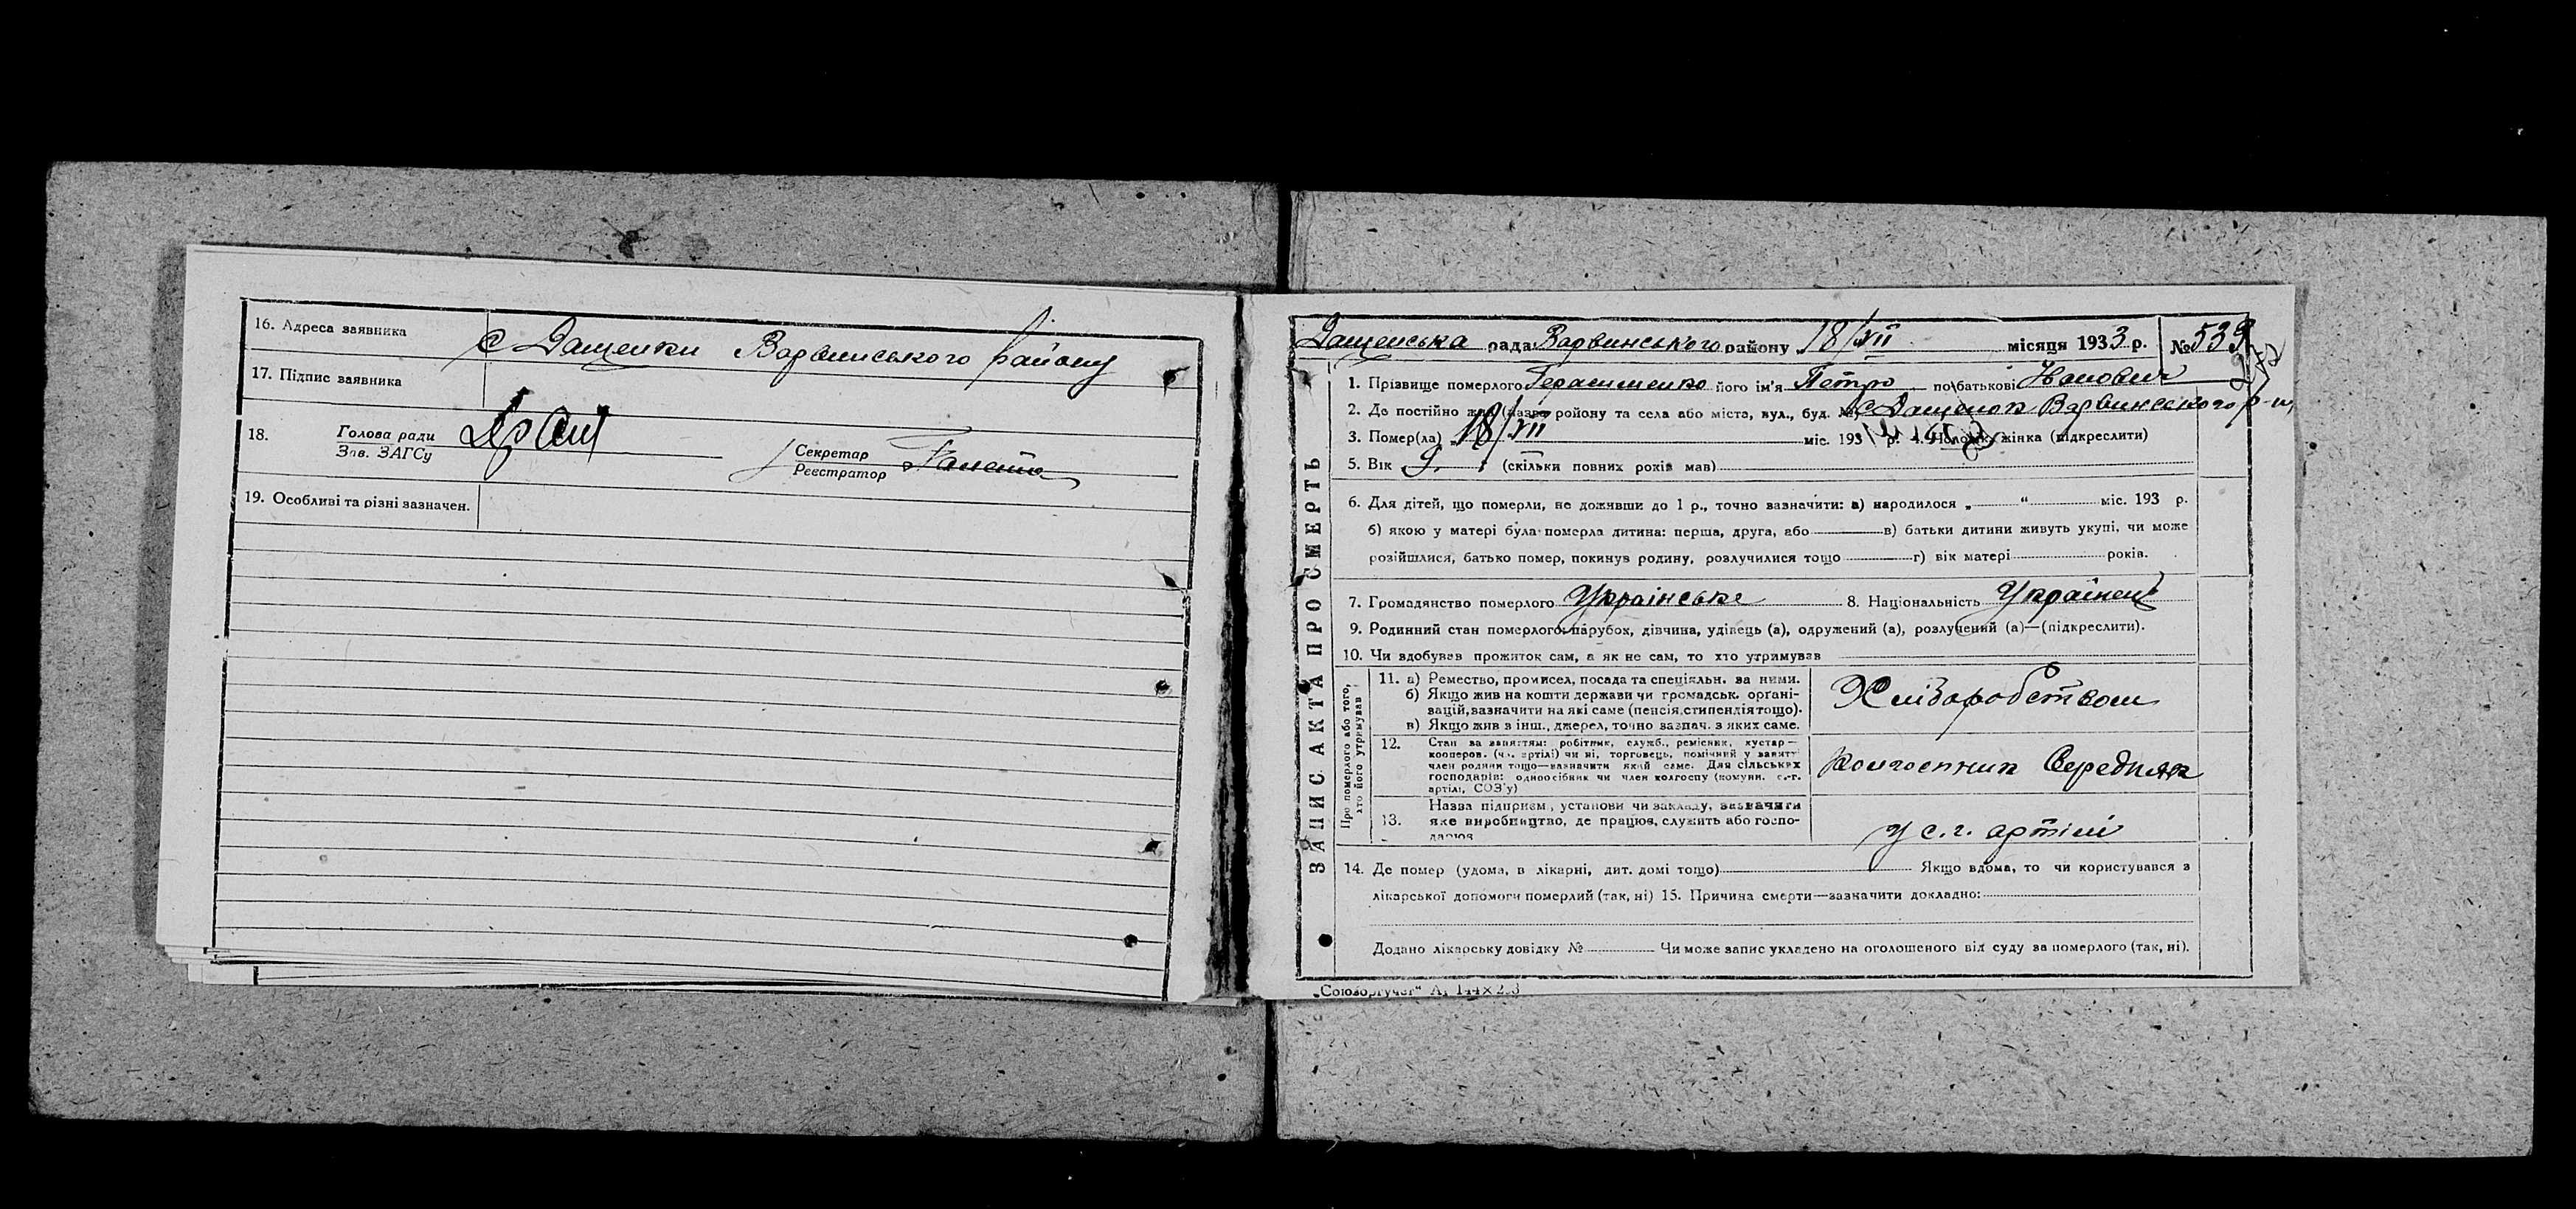 16. Адреса заявника с Дащенки Варвинського району
17. Підпис заявника
18. Голова ради
Зав. ЗАГСу
Секретар
Реєстратор
19. Особливі та різні зазначен.
Дащенська рада Варвинського району 18/VII місяця 1933 р. № 539
ЗАПИС АКТА ПРО СМЕРТЬ
1. Прізвище померлого Герасименко його ім'я Петро по батькові
2. Де постійно жив (назва району та села або міста, вул., буд. №) с Дащенок Варвинського р-ну
3. Помер(ла) 18/VII міс. 193 р. 4. Чоловік, жінка (підкреслити)
5. Вік 9. (скільки повних років мав)
6. Для дітей, що померли, не доживши до 1 р., точно зазначити: а) народилося „ “ міс. 193 р.
б) якою у матері була померла дитина: перша, друга, або в) батьки дитини живуть укупі, чи може
розійшлися, батько помер, покинув родину, розлучилися тощо г) вік матері років.
7. Громадянство померлого Українське 8. Національність Українець
9. Родинний стан померлого: парубок, дівчина, удівець (а), одружений (а), розлучений (а)—(підкреслити).
10. Чи здобував прожиток сам, а як не сам, то хто утримував
Про померлого або того,
хто його утримував
11. а) Ремество, промисел, посада та спеціяльн. за ними.
б) Якщо жив на кошти держави чи громадськ. орґані-
зацій, зазначити на які саме (пенсія, стипендія тощо).
в) Якщо жив з інш., джерел, точно зазнач. з яких саме.
Хліборобством
12. Стан за заняттям: робітник, служб., ремісник, кустар—
кооперов. (чл. артілі) чи ні, торговець, помічний у занятт.
член родини тощо—зазначити який саме. Для сільських
господарів: одноосібник чи член колгоспу (комуни, с.-г.
артілі, СОЗ'у)
Колгоспник Середняк
13. Назва підприєм., установи чи закладу, зазначити
яке виробництво, де працює, служить або госпо-
дарює
у с.г. артілі
14. Де помер (удома, в лікарні, дит. домі тощо) Якщо вдома, то чи користувався з
лікарської допомоги померлий (так, ні) 15. Причина смерти—зазначити докладно:
Додано лікарську довідку № Чи може запис укладено на оголошеного від суду за померлого (так, ні).
„Союзоргучет“ А₁ 144×2 3